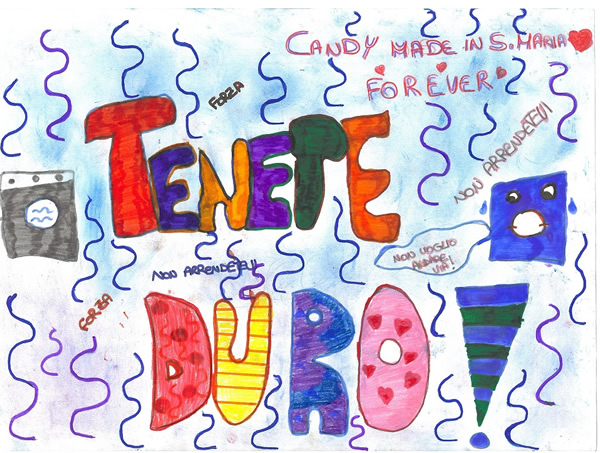 CANDY MADE IN S. MARIA
FOREVER
FORZA
TENETE
NON ARRENDETEVI
NON VOGLIO
ANDARE
VIA!
NON ARRENDETEVI
FORZA
DURO!